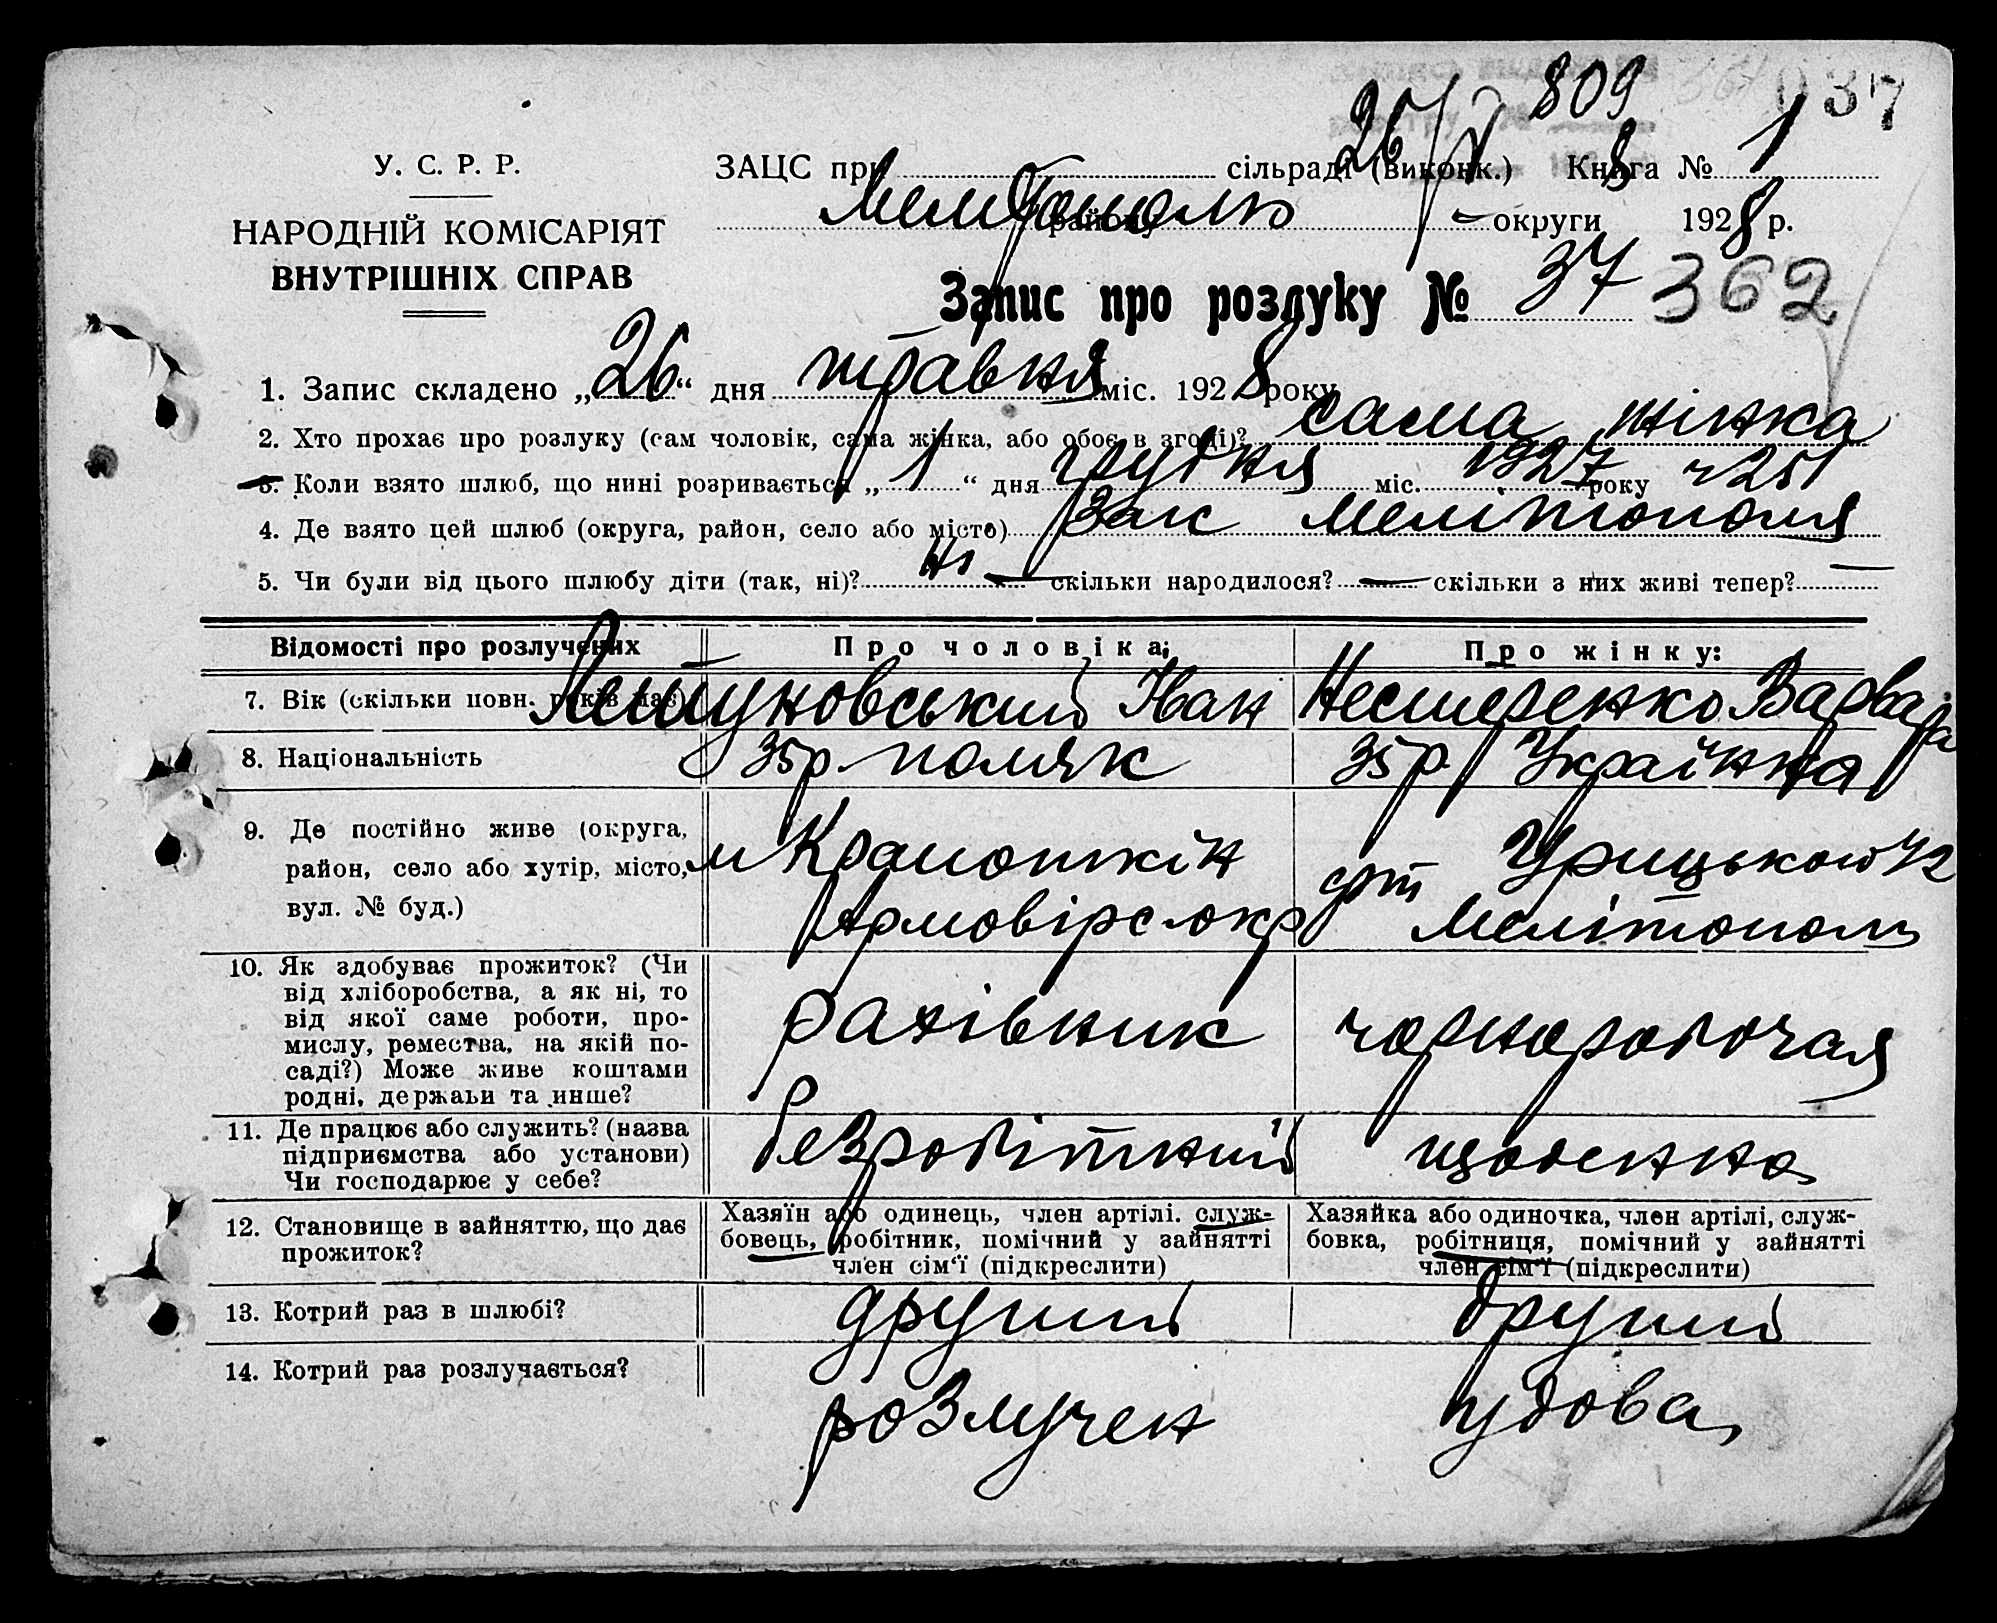 809
26/V
037
У. С. Р. Р.
ЗАЦС при сільраді (виконк.) Книга № 1
НАРОДНІЙ КОМІСАРІЯТ
ВНУТРІШНІХ СПРАВ
району округи 1928 р.
Запис про розлуку № 37 362
1. Запис складено „26“ дня травня міс. 1928 року
2. Хто прохає про розлуку (сам чоловік, сама жінка, або обоє в згоді)? сама жінка
3. Коли взято шлюб, що нині розривається „1“ дня грудня міс. 1927 року ч 251
4. Де взято цей шлюб (округа, район, село або місто) Загс Мелітополя
5. Чи були від цього шлюбу діти (так, ні)? ні — скільки народилося? — скільки з них живі тепер? —
Відомості про розлучених Про чоловіка: Про жінку:
7. Вік (скільки повн. років має) Іван Нестеренко Варвара
8. Національність 35 р. поляк 35 р. Українка
9. Де постійно живе (округа, район, село або хутір, місто, вул. № буд.)
м Крапоткін
Армовірс окр
Урицького 42
Мелітополь
10. Як здобуває прожиток? (Чи від хліборобства, а як ні, то від якої саме роботи, промислу, ремества, на якій посаді?) Може живе коштами родні, держави та инше?
рахівник чорноробочая
11. Де працює або служить? (назва підприємства або установи) Чи господарює у себе?
безробітний щоденна
12. Становище в зайняттю, що дає прожиток?
Хазяїн або одинець, член артілі, службовець, робітник, помічний у зайнятті член сім'ї (підкреслити)
Хазяйка або одиночка, член артілі, службовка, робітниця, помічний у зайнятті член сім'ї (підкреслити)
13. Котрий раз в шлюбі? другий другий
14. Котрий раз розлучається? розлучен удова